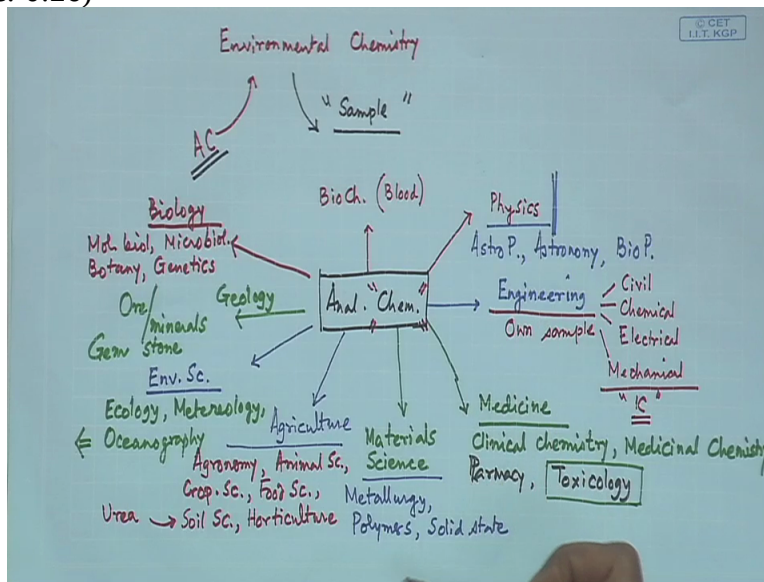 © CET
I.I.T. KGP
Environmental Chemistry
" Sample "
AC
BioCh. (Blood)
Biology
Mol. biol, Microbiol.
Botany, Genetics
Physics
Astro P., Astronomy, Bio P.
Anal. Chem.
Engineering
Own sample
Civil
Chemical
Electrical
Mechanical
" IC "
Geology
Ore/minerals
Gem stone
Env. Sc.
Ecology, Metereology,
Oceanography
Agriculture
Agronomy, Animal Sc.,
Crop. Sc., Food Sc.,
Urea → Soil Sc., Horticulture
Materials
Science
Metallurgy,
Polymers, Solid state
Medicine
Clinical chemistry, Medicinal Chemistry
Parmacy, Toxicology